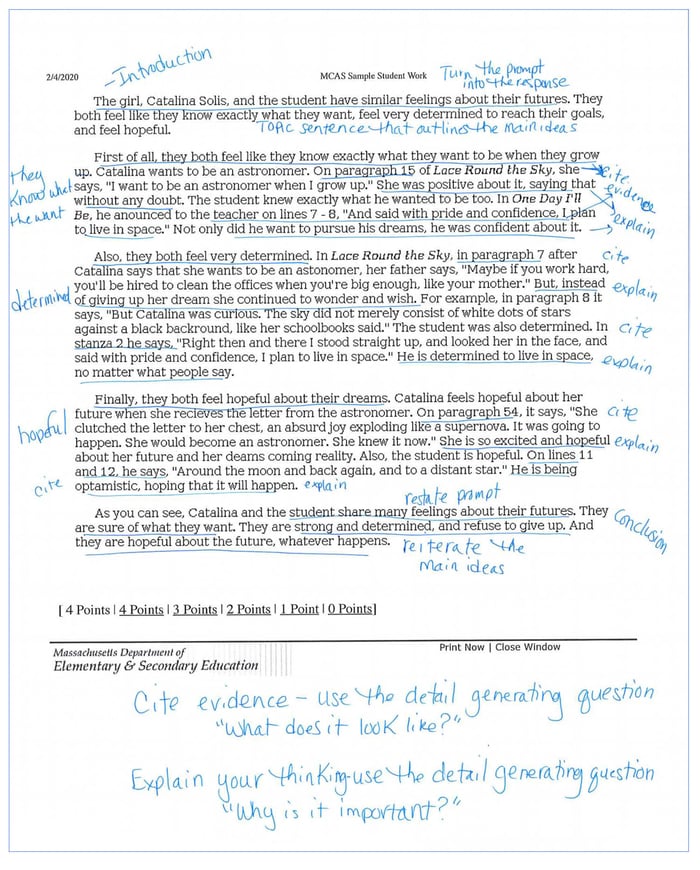 -Introduction
2/4/2020
MCAS Sample Student Work
Turn the prompt
into the response
The girl, Catalina Solis, and the student have similar feelings about their futures. They
both feel like they know exactly what they want, feel very determined to reach their goals,
and feel hopeful.
Topic sentence that outlines the main ideas
First of all, they both feel like they know exactly what they want to be when they grow
up. Catalina wants to be an astronomer. On paragraph 15 of Lace Round the Sky, she
says, "I want to be an astronomer when I grow up." She was positive about it, saying that
without any doubt. The student knew exactly what he wanted to be too. In One Day I'll
Be, he anounced to the teacher on lines 7 - 8, "And said with pride and confidence, I plan
to live in space." Not only did he want to pursue his dreams, he was confident about it.
they
Know what
the want
cite
evidence
explain
Also, they both feel very determined. In Lace Round the Sky, in paragraph 7 after
Catalina says that she wants to be an astonomer, her father says, "Maybe if you work hard,
you'll be hired to clean the offices when you're big enough, like your mother." But, instead
of giving up her dream she continued to wonder and wish. For example, in paragraph 8 it
says, "But Catalina was curious. The sky did not merely consist of white dots of stars
against a black backround, like her schoolbooks said." The student was also determined. In
stanza 2 he says, "Right then and there I stood straight up, and looked her in the face, and
said with pride and confidence, I plan to live in space." He is determined to live in space,
no matter what people say.
determined
cite
explain
cite
explain
Finally, they both feel hopeful about their dreams. Catalina feels hopeful about her
future when she recieves the letter from the astronomer. On paragraph 54, it says, "She
clutched the letter to her chest, an absurd joy exploding like a supernova. It was going to
happen. She would become an astronomer. She knew it now." She is so excited and hopeful
about her future and her deams coming reality. Also, the student is hopeful. On lines 11
and 12, he says, "Around the moon and back again, and to a distant star." He is being
optamistic, hoping that it will happen.
hopeful
cite
cite
explain
explain
restate prompt
As you can see, Catalina and the student share many feelings about their futures. They
are sure of what they want. They are strong and determined, and refuse to give up. And
they are hopeful about the future, whatever happens.
Conclusion
reiterate the
main ideas
[ 4 Points | 4 Points | 3 Points | 2 Points | 1 Point | 0 Points]
Massachusetts Department of
Elementary & Secondary Education
Print Now | Close Window
Cite evidence - use the detail generating question
"What does it look like?"
Explain your thinking-use the detail generating question
"Why is it important?"